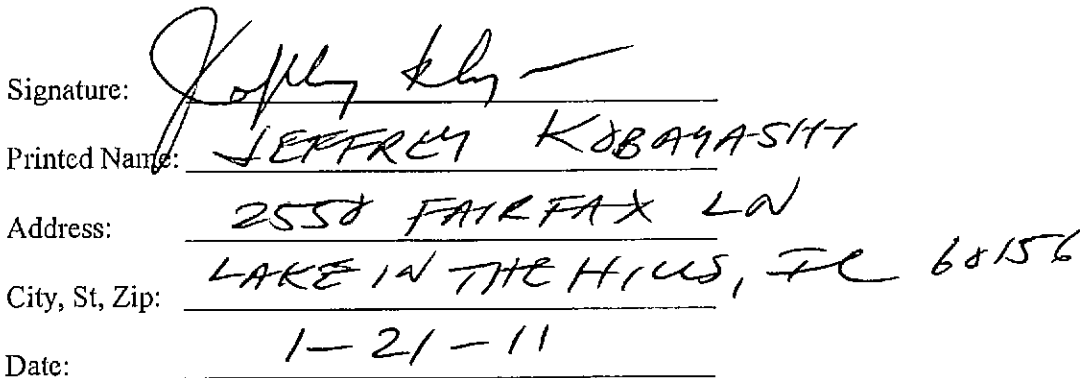 Signature:
Printed Name: JEFFREY KOBAYASHI
Address: 2550 FAIRFAX LN
City, St, Zip: LAKE IN THE HILLS, IL 60156
Date: 1-21-11